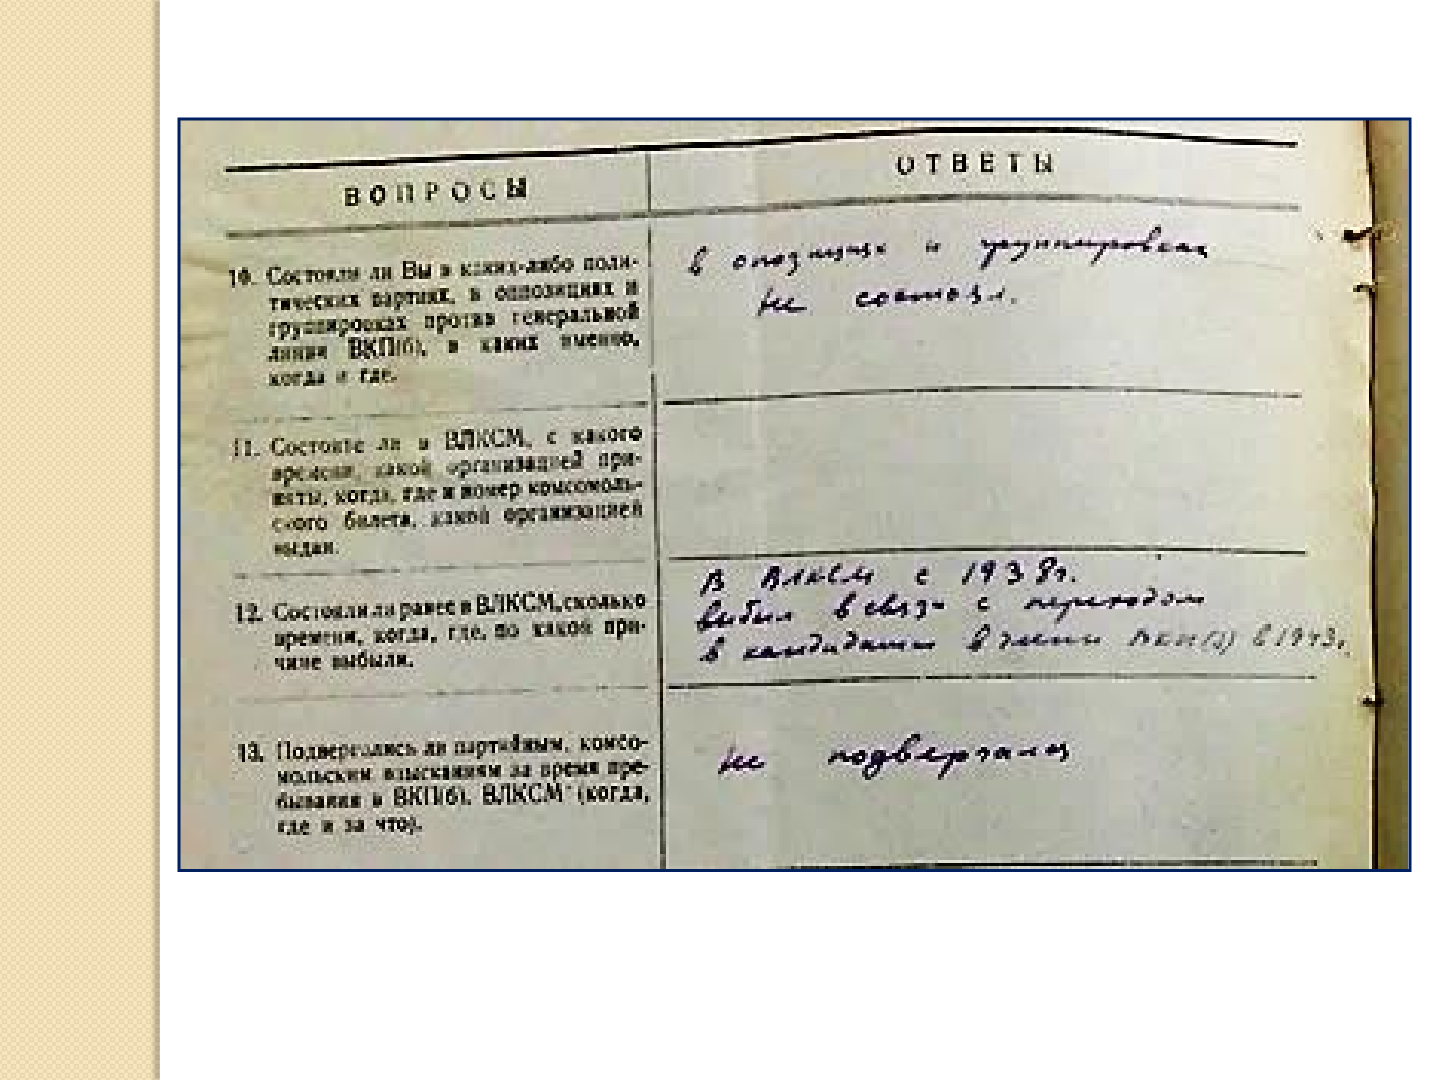 ВОПРОСЫ
ОТВЕТЫ
10. Состояли ли Вы в каких-либо поли-
тических партиях, в оппозициях и
группировках против генеральной
линии ВКП(б), в каких именно,
когда и где.
в опозициях и группировках
не состоял.
11. Состоите ли в ВЛКСМ, с какого
времени, какой организацией при-
няты, когда, где и номер комсомоль-
ского билета, какой организацией
выдан.
12. Состояли ли ранее в ВЛКСМ, сколько
времени, когда, где, по какой при-
чине выбыли.
В ВЛКСМ с 1938г.
выбыл в связи с переходом
в кандидаты в члены ВКП(б) в 1943г.
13. Подвергались ли партийным, комсо-
мольским взысканиям за время пре-
бывания в ВКП(б), ВЛКСМ (когда,
где и за что).
не подвергался